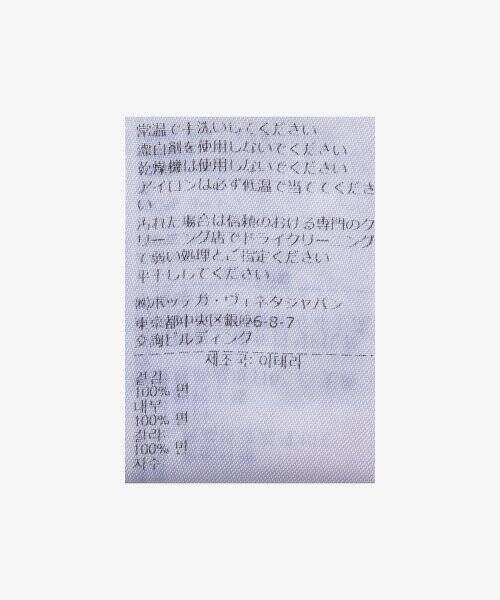 常温で手洗いしてください
漂白剤を使用しないでください
乾燥機は使用しないでください
アイロンは必ず低温で当ててくださ
い
汚れた場合は信頼のおける専門のク
リーニング店でドライクリーニング
で弱い処理とご指定ください
平干ししてください
㈱ボッテガ・ヴェネタジャパン
東京都中央区銀座6-8-7
交詢ビルディング
제조국: 이태리
겉감
100% 면
내부
100% 면
칼라
100% 면
자수